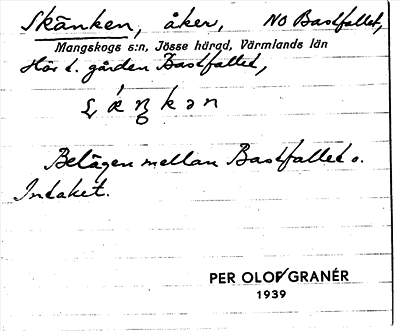 Skänken, åker, NO Bastfallet,
Mangskogs s:n, Jösse härad, Värmlands län
Hör t. gården Bastfallet,
Belägen mellan Bastfallet o.
Intaket.
PER OLOF GRANÉR
1939